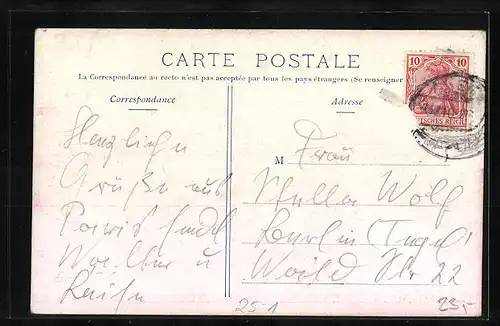 CARTE POSTALE
La Correspondance au recto n'est pas acceptée par tous les pays étrangers (Se renseigner
Correspondance
Adresse
10 10
TSCHES REICH
Herzliche
Grüße aus
Paris sendet
Walter u
M Frau
Stella Wolf
Berlin (Tegel)
Str 22
25-1
235,-